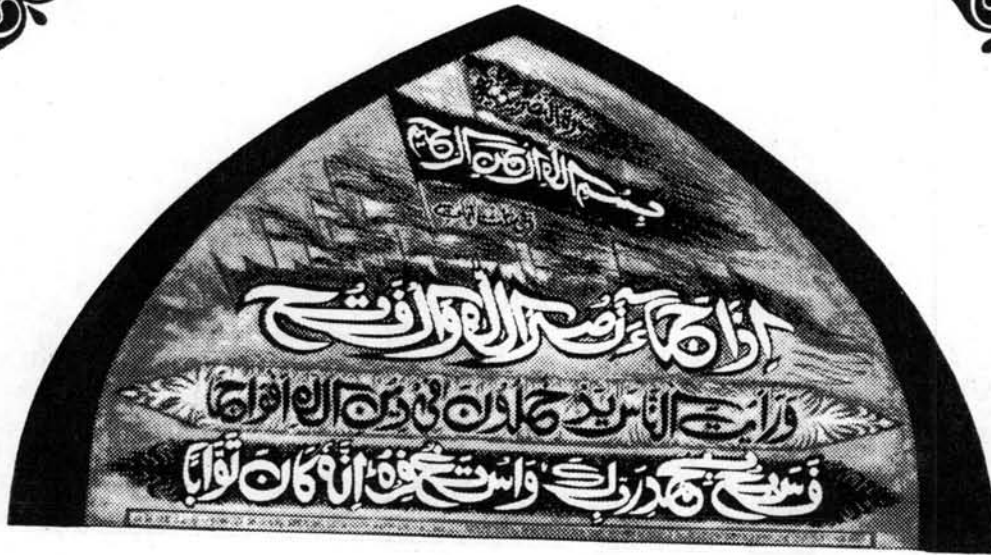 سورة النصر
بِسْمِ اللهِ الرَّحْمٰنِ الرَّحِيْمِ
إِذَا جَآءَ نَصْرُ اللهِ وَالْفَتْحُ
وَرَأَيْتَ النَّاسَ يَدْخُلُونَ فِي دِينِ اللهِ أَفْوَاجًا
فَسَبِّحْ بِحَمْدِ رَبِّكَ وَاسْتَغْفِرْهُ إِنَّهُ كَانَ تَوَّابًا